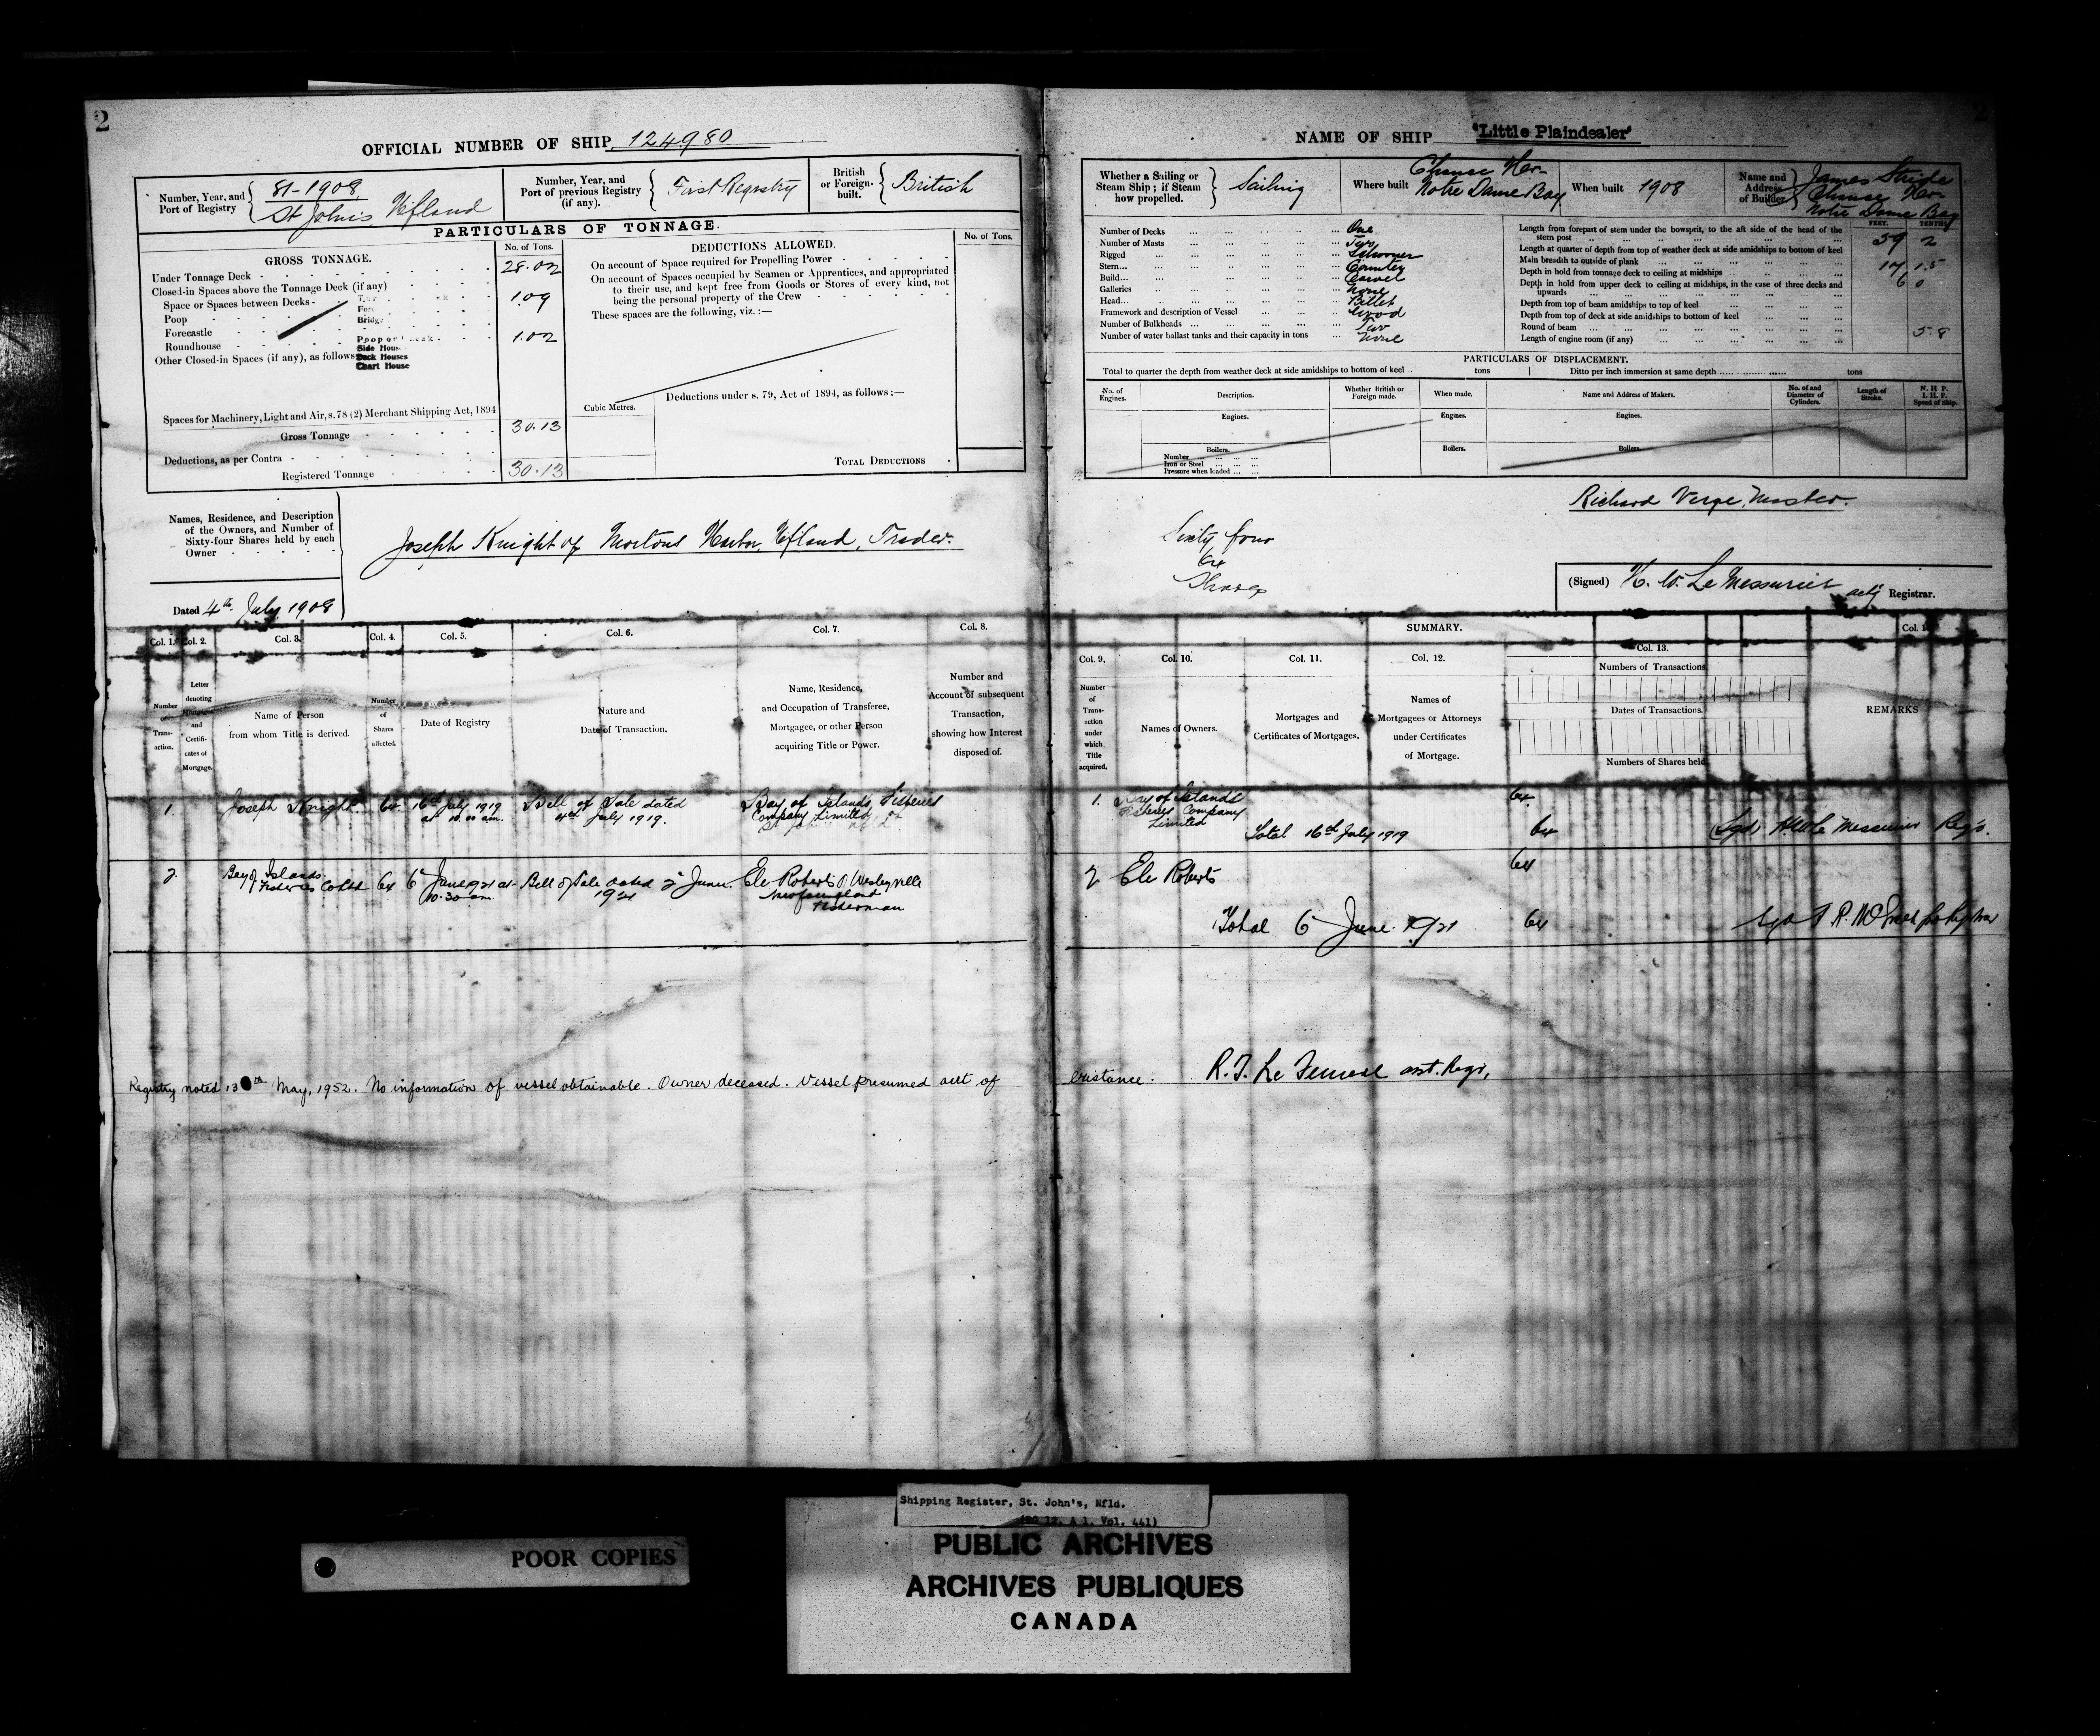 2
OFFICIAL NUMBER OF SHIP 124980
Number, Year, and Port of Registry
81-1908
St John's, Nfland
Number, Year, and Port of previous Registry (if any).
First Registry
British or Foreign-built.
British
PARTICULARS OF TONNAGE.
GROSS TONNAGE.
No. of Tons.
Under Tonnage Deck 28.02
Closed-in Spaces above the Tonnage Deck (if any)
Space or Spaces between Decks 1.09
Poop
Forecastle 1.02
Roundhouse
Other Closed-in Spaces (if any), as follows
Side House
Deck Houses
Chart House
Spaces for Machinery, Light and Air, s. 78 (2) Merchant Shipping Act, 1894
Gross Tonnage 30.13
Deductions, as per Contra
Registered Tonnage 30.13
DEDUCTIONS ALLOWED.
No. of Tons.
On account of Space required for Propelling Power
On account of Spaces occupied by Seamen or Apprentices, and appropriated
to their use, and kept free from Goods or Stores of every kind, not
being the personal property of the Crew
These spaces are the following, viz. :—
Cubic Metres.
Deductions under s. 79, Act of 1894, as follows :—
TOTAL DEDUCTIONS
Names, Residence, and Description
of the Owners, and Number of
Sixty-four Shares held by each
Owner
Joseph Knight of Mortons Harbor, Nfland, Trader.
Dated 4th July 1908
Col. 1. Col. 2. Col. 3. Col. 4. Col. 5. Col. 6. Col. 7. Col. 8.
Number of Transaction.
Letter denoting Mortgages and Certificates of Mortgage.
Name of Person from whom Title is derived.
Number of Shares affected.
Date of Registry
Nature and Date of Transaction.
Name, Residence, and Occupation of Transferee, Mortgagee, or other Person acquiring Title or Power.
Number and Account of subsequent Transaction, showing how Interest disposed of.
1. Joseph Knight 64 16th July 1919 at 10.00 am. Bill of Sale dated 4th July 1919. Bay of Islands Fisheries Company Limited of St John's Nfld
2 Bay of Islands Fisheries Co Ltd 64 6 June 1921 at 10.30 am. Bill of Sale dated 2 June 1921 Ele Roberts of Wesleyville Newfoundland Fisherman
Registry noted 13th May, 1952. No information of vessel obtainable. Owner deceased. Vessel presumed out of
NAME OF SHIP 'Little Plaindealer'
Whether a Sailing or Steam Ship ; if Steam how propelled.
Sailing
Where built
Chance Hr
Notre Dame Bay
When built 1908
Name and Address of Builder
James Stride
Chance Hr
Notre Dame Bay
Number of Decks One
Number of Masts Two
Rigged Schooner
Stern Counter
Build Carvel
Galleries None
Head Billet
Framework and description of Vessel Wood
Number of Bulkheads Two
Number of water ballast tanks and their capacity in tons None
FEET. TENTHS
Length from forepart of stem under the bowsprit, to the aft side of the head of the
stern post 59 2
Length at quarter of depth from top of weather deck at side amidships to bottom of keel
Main breadth to outside of plank 17 1.5
Depth in hold from tonnage deck to ceiling at midships 6 0
Depth in hold from upper deck to ceiling at midships, in the case of three decks and
upwards
Depth from top of beam amidships to top of keel
Depth from top of deck at side amidships to bottom of keel
Round of beam 5.8
Length of engine room (if any)
PARTICULARS OF DISPLACEMENT.
Total to quarter the depth from weather deck at side amidships to bottom of keel tons
Ditto per inch immersion at same depth tons
No. of Engines.
Description.
Whether British or Foreign made.
When made.
Name and Address of Makers.
No. of and Diameter of Cylinders.
Length of Stroke.
N. H. P.
I. H. P.
Speed of Ship.
Engines. Engines. Engines.
Boilers. Boilers. Boilers.
Number
Iron or Steel
Pressure when loaded
Richard Verge, Master.
Sixty four
64
Shares
(Signed) H. W. LeMessurier actg Registrar.
SUMMARY.
Col. 9. Col. 10. Col. 11. Col. 12. Col. 13.
Number of Transaction under which Title acquired.
Names of Owners.
Mortgages and Certificates of Mortgages.
Names of Mortgagees or Attorneys under Certificates of Mortgage.
Numbers of Transactions.
Dates of Transactions.
Numbers of Shares held.
REMARKS
1. Bay of Islands Fisheries Company Limited 64
Total 16th July 1919 64 (Sgd) HW Le Messurier Regr.
2 Ele Roberts 64
Total 6 June 1921 64
existance. asst. Regr,
POOR COPIES
Shipping Register, St. John's, Nfld.
(RG 12, A 1, Vol. 441)
PUBLIC ARCHIVES
ARCHIVES PUBLIQUES
CANADA